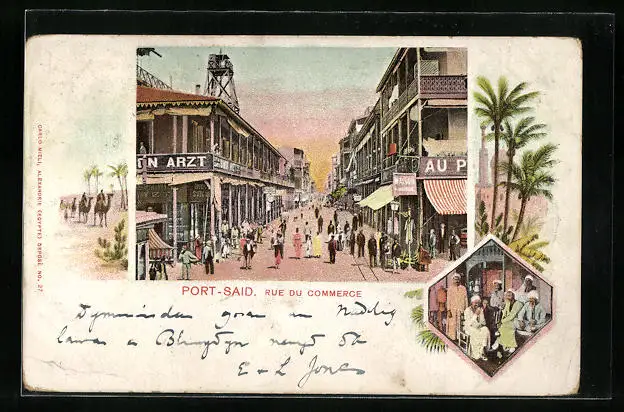 CARLO MIELI, ALEXANDRIE (EGYPTE) DÉPOSÉ NO. 27
N ARZT
AU P
PORT-SAID. RUE DU COMMERCE
Dymuniadau goreu am Nadolig
lawen a Blwyddyn newydd
E & L Jones